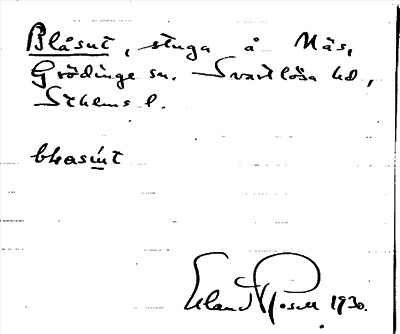 Blåsut, stuga å Näs,
Grödinge sn. Svartlösa hd,
Sthems l.
Erland Rosell 1930.